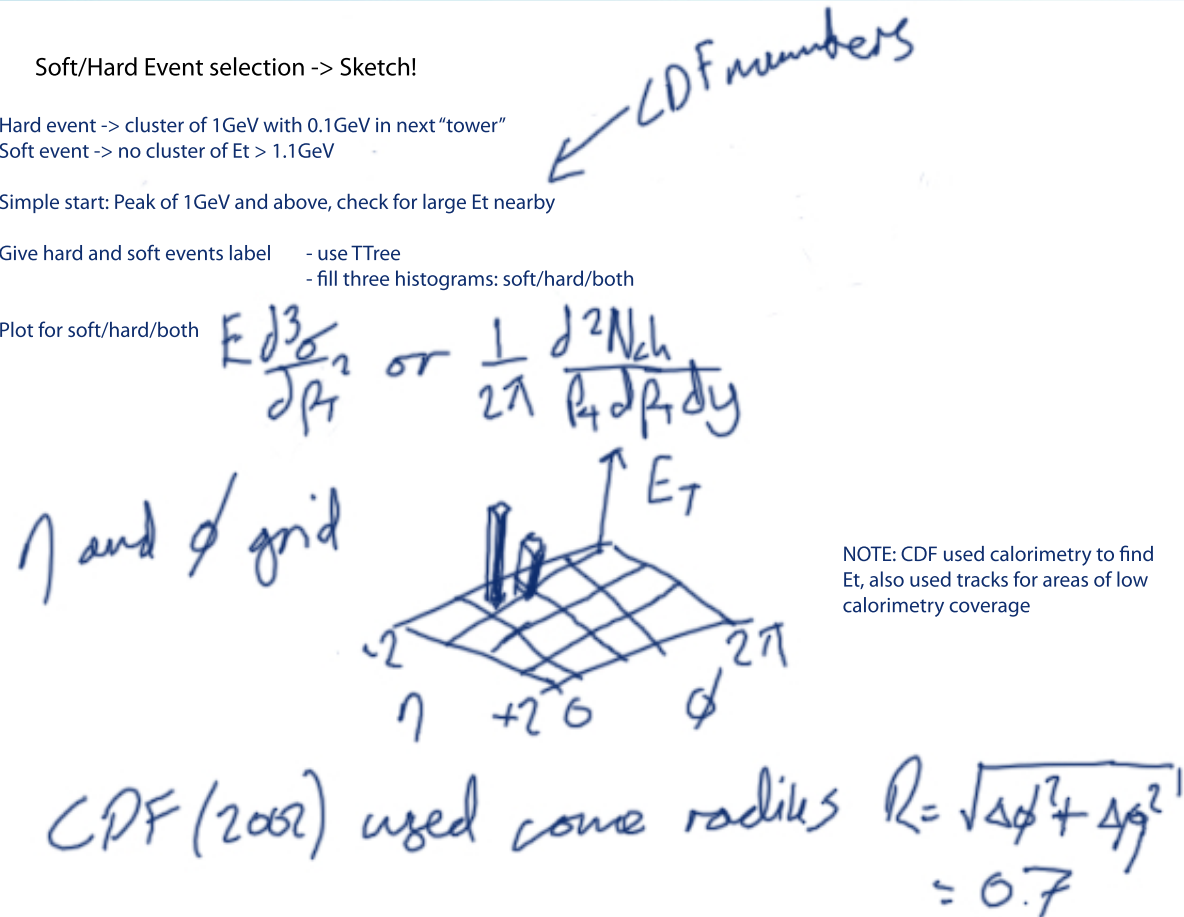 CDF numbers
Soft/Hard Event selection -> Sketch!
Hard event -> cluster of 1GeV with 0.1GeV in next “tower”
Soft event -> no cluster of Et > 1.1GeV
Simple start: Peak of 1GeV and above, check for large Et nearby
Give hard and soft events label - use TTree
- fill three histograms: soft/hard/both
Plot for soft/hard/both E d³σ / dp_T² or 1/2π d²N_ch / p_T dp_T dy
η and φ grid
E_T
NOTE: CDF used calorimetry to find
Et, also used tracks for areas of low
calorimetry coverage
-2 2π
η +2 0 φ
CDF (2002) used cone radius R = √Δφ² + Δη²
= 0.7